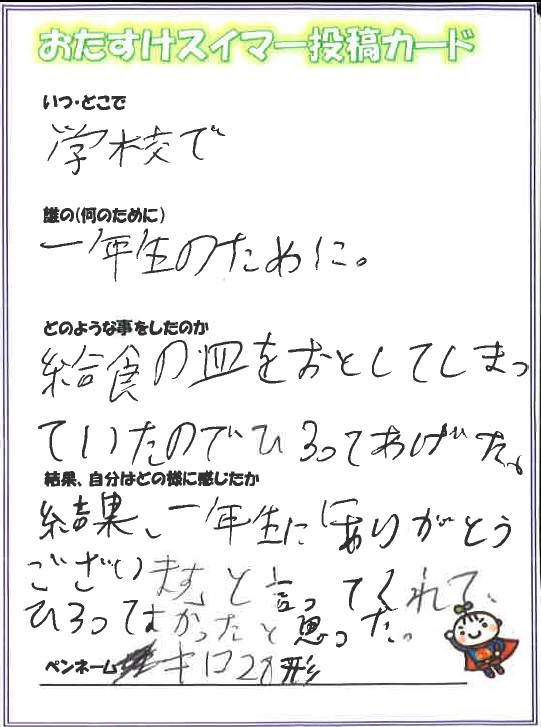 おたすけスイマー投稿カード
いつ・どこで
学校で
誰の(何のために)
一年生のために。
どのような事をしたのか
給食の皿をおとしてしまっ
ていたのでひろってあげた。
結果、自分はどの様に感じたか
結果、一年生に「ありがとう
ございます」と言ってくれて、
ひろってよかったと思った。
ペンネーム